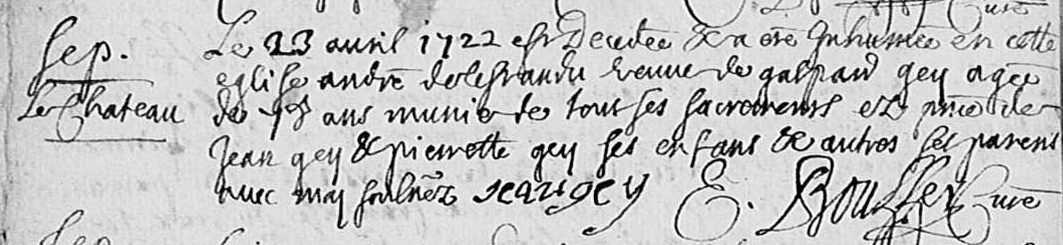 Sep.
Le Chateau
Le 23 auril 1722 est Decedée & a eté Inhumée en cette
eglise andrée veuue de gaspard gey agée
de ans munie de tout ses sacremens en pnce de
Jean gey & pierrette gey ses enfans & autres ses parens
auec moy soubnez Jean gey E. Bouffer Curé